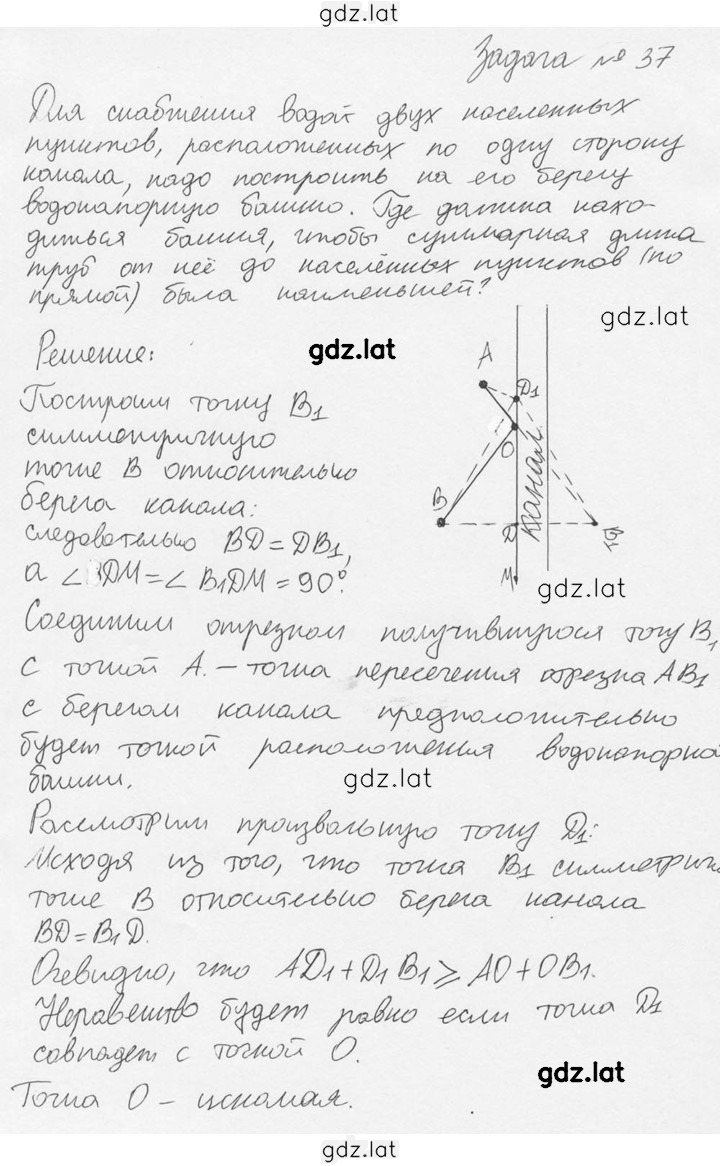 gdz.lat
Задача № 37
Для снабжения водой двух населенных
пунктов, расположенных по одну сторону
канала, надо построить на его берегу
водонапорную башню. Где должна нахо-
диться башня, чтобы суммарная длина
труб от неё до населённых пунктов (по
прямой) была наименьшей?
gdz.lat
Решение:
gdz.lat
Построим точку B₁
симметричную
точке B относительно
берега канала:
следовательно BD = DB₁,
а ∠BDM = ∠ B₁DM = 90°.
A
D₁
O
канал
B
D
B₁
M
gdz.lat
Соединим отрезком получившуюся точу B₁
с точкой A. – точка пересечения отрезка AB₁
с берегом канала предположительно
будет точкой расположения водонапорной
башни.
gdz.lat
Рассмотрим произвольную точку D₁:
Исходя из того, что точка B₁ симметрична
точке B относительно берега канала
BD = B₁D.
Очевидно, что AD₁ + D₁B₁ ⩾ AO + OB₁.
Неравенство будет равно если точка D₁
совпадет с точкой O.
gdz.lat
Точка O – искомая.
gdz.lat